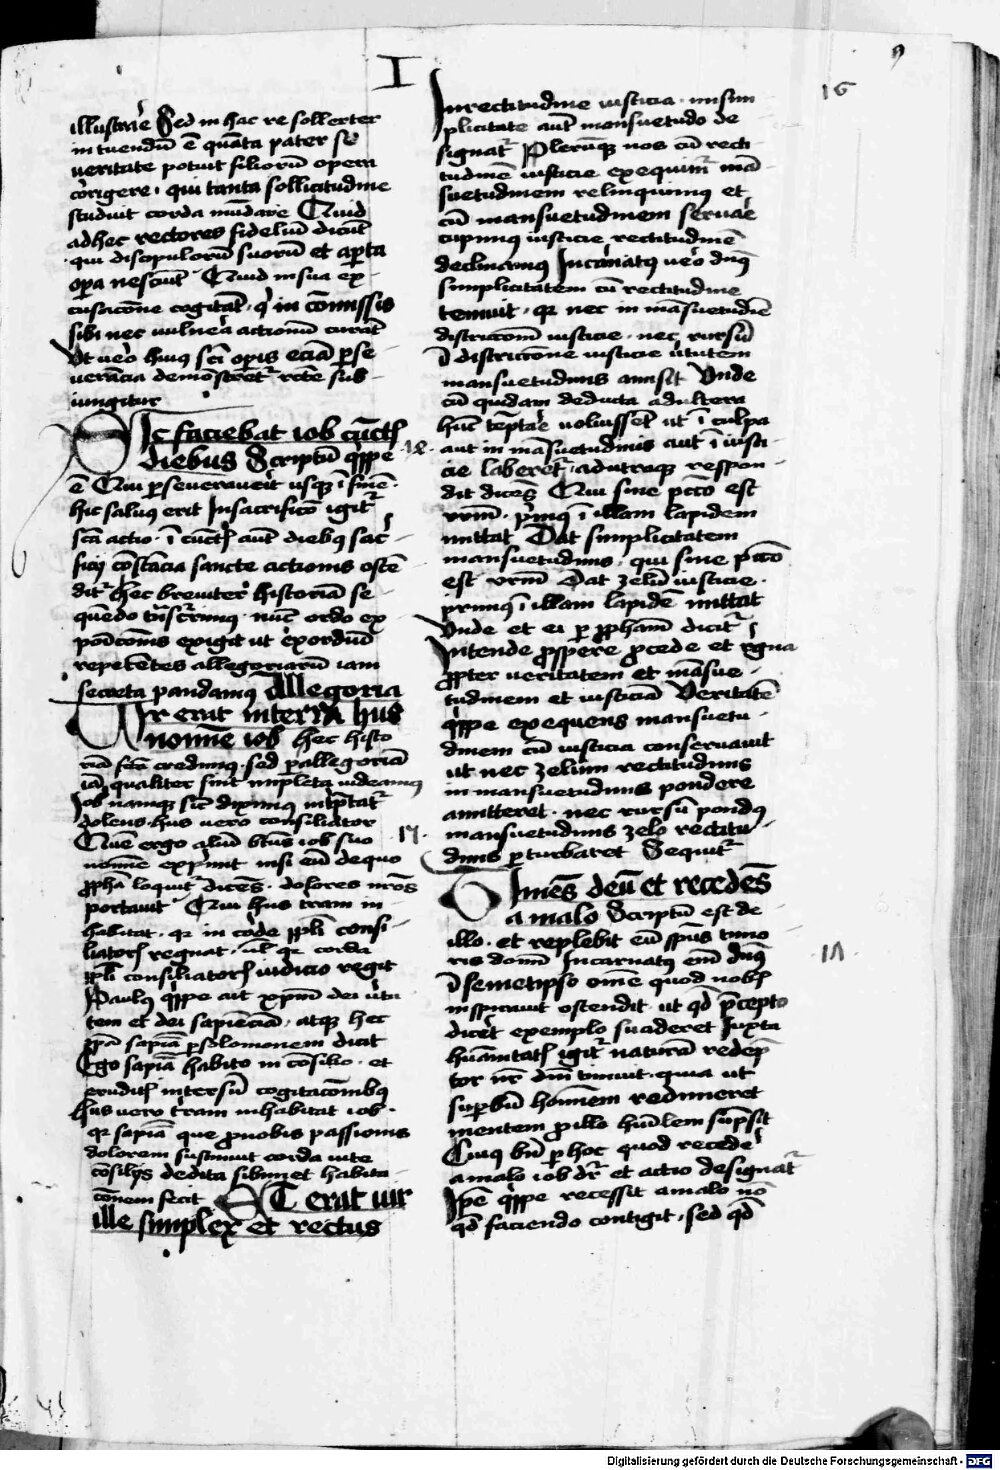 I
9
illustrare Sed in hac re sollerter
intuendū ē quāta pater se
veritate potuit filiorū opera
corrigere · qui tanta sollicitudine
studuit corda mūdare Quid
ad hec rectores fideliū dicūt
qui discipulorū suorū et aperta
opera nesciūt Quid in sua ex
cusacōne cogitāt · qui in cōmissis
sibi nec vulnera actionū curāt
Vt vero huius sci operis eciā perse
verācia demōstretr recte sub
iungitur
Sic faciebat iob cūctis
diebus Scriptū quippe
ē Qui perseveraverit usque ī finē
hic salvus erit In sacrificio igitr
scā actio · ī cūctis aūt diebus sac
ficij cōstācia sancte actionis ostē
ditr hec breviter historiā se
quēdo trāscurrimus · nūc ordo ex
posicōnis exigit ut exordiū
repetentes allegoriarū iam
secreta pandamus Allegoria
Vir erat in terra hus
nomīe iob hec histo
ricā factā credimus · sed per allegoriā
iā qualiter sint impleta videamus
Iob namque sicut diximus interpretatr
dolens · hus vero consiliator
Quē ergo aliū btus iob suo
nomīe exprimit nisi eū de quo
propheta loquitr dicens · dolores nros
portavit Qui hus terram in
habitat · quia in corde populi consi
liatoris regnat · vel quia corda
populi consiliatoris iudicio regit
Paulus quippe ait xpm dei virtu
tem et dei sapienciā · atque hec
ipsa sapiā per salomonem dicit
Ego sapiā habito in cōsilio · et
eruditis intersū cogitacōnibus
hus vero terram inhabitat iob ·
quia sapiā que pro nobis passionis
dolorem sustinuit corda vite
cōsilijs dedita sibimet habita
cōnem fecit Et erat vir
ille simplex et rectus
16
In rectitudine iusticia · in sim
plicitate aūt mansuetudo de
signatr Plerumque nos cū recti
tudinē iusticie exequimr mā
suetudinem relinquimus et
cū mansuetudinem servare
cupimus iusticie rectitudinē
declinamus Incarnatus vero dns
simplicitatem cū rectitudine
tenuit · quia nec in māsuetudine
districcōnem iusticie · nec rursū
ī districcōne iusticie virtutem
mansuetudinis amisit Unde
cū quidam deducta adultera
hūc temptare voluissent ut ī culpa
aut in māsuetudinis aut ī iusti
cie laberetr · ad utraque respon
dit dicens Qui sine pctō est
vrm · primus ī illam lapidem
mittat Dat simplicitatem
mansuetudinis · qui sine pctō
est vrm Dat zelū iusticie ·
primus ī illam lapidē mittat
Vnde et ei per prophetam dicitr
Intende prospere procede et regna
propter veritatem et māsue
tudinem et iusticiā Veritatē
quippe exequens mansuetu
dinem cū iusticia conservavit
ut nec zelum rectitudinis
in mansuetudinis pondere
amitteret · nec rursū pondus
mansuetudinis zelo rectitu
dinis perturbaret Sequitr
17
Timens deū et recedens
a malo Scriptū est de
illo · et replebit eū spiritus timo
ris domini Incarnatus enim dns
ī semetipso omne quod nobis
inspiravit ostendit · ut quod precepto
diceret exemplo suaderet Iuxta
humanitatis igitr naturā redemp
tor nr deū timuit · quia ut
superbū hominem redimeret
mentem pro illo humilem sumpsit
Cuius bn per hoc quod recedere
a malo iob dr et actio designatr
Ipse quippe recessit a malo nō
quod faciendo contigit · sed quod
Digitalisierung gefördert durch die Deutsche Forschungsgemeinschaft - DFG